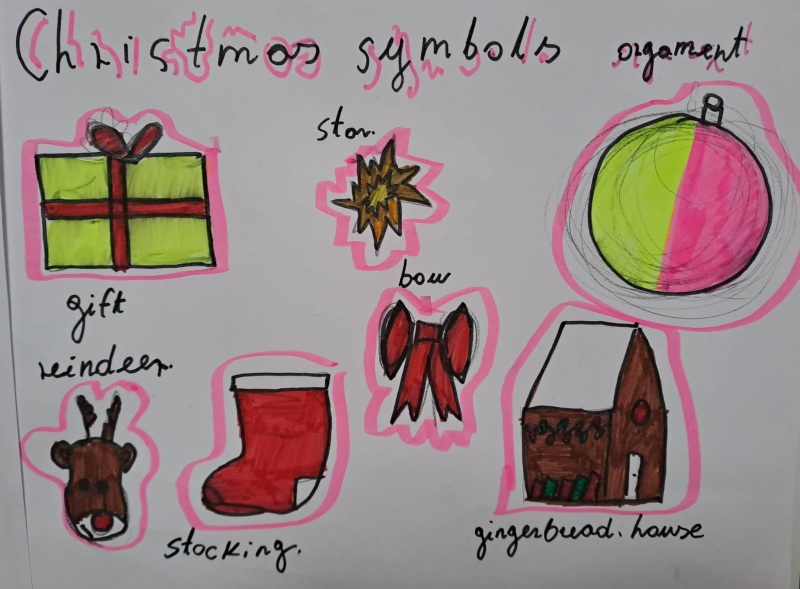 Christmas symbols
orgament
star.
gift
bow
reindeer.
stocking.
gingerbread. house